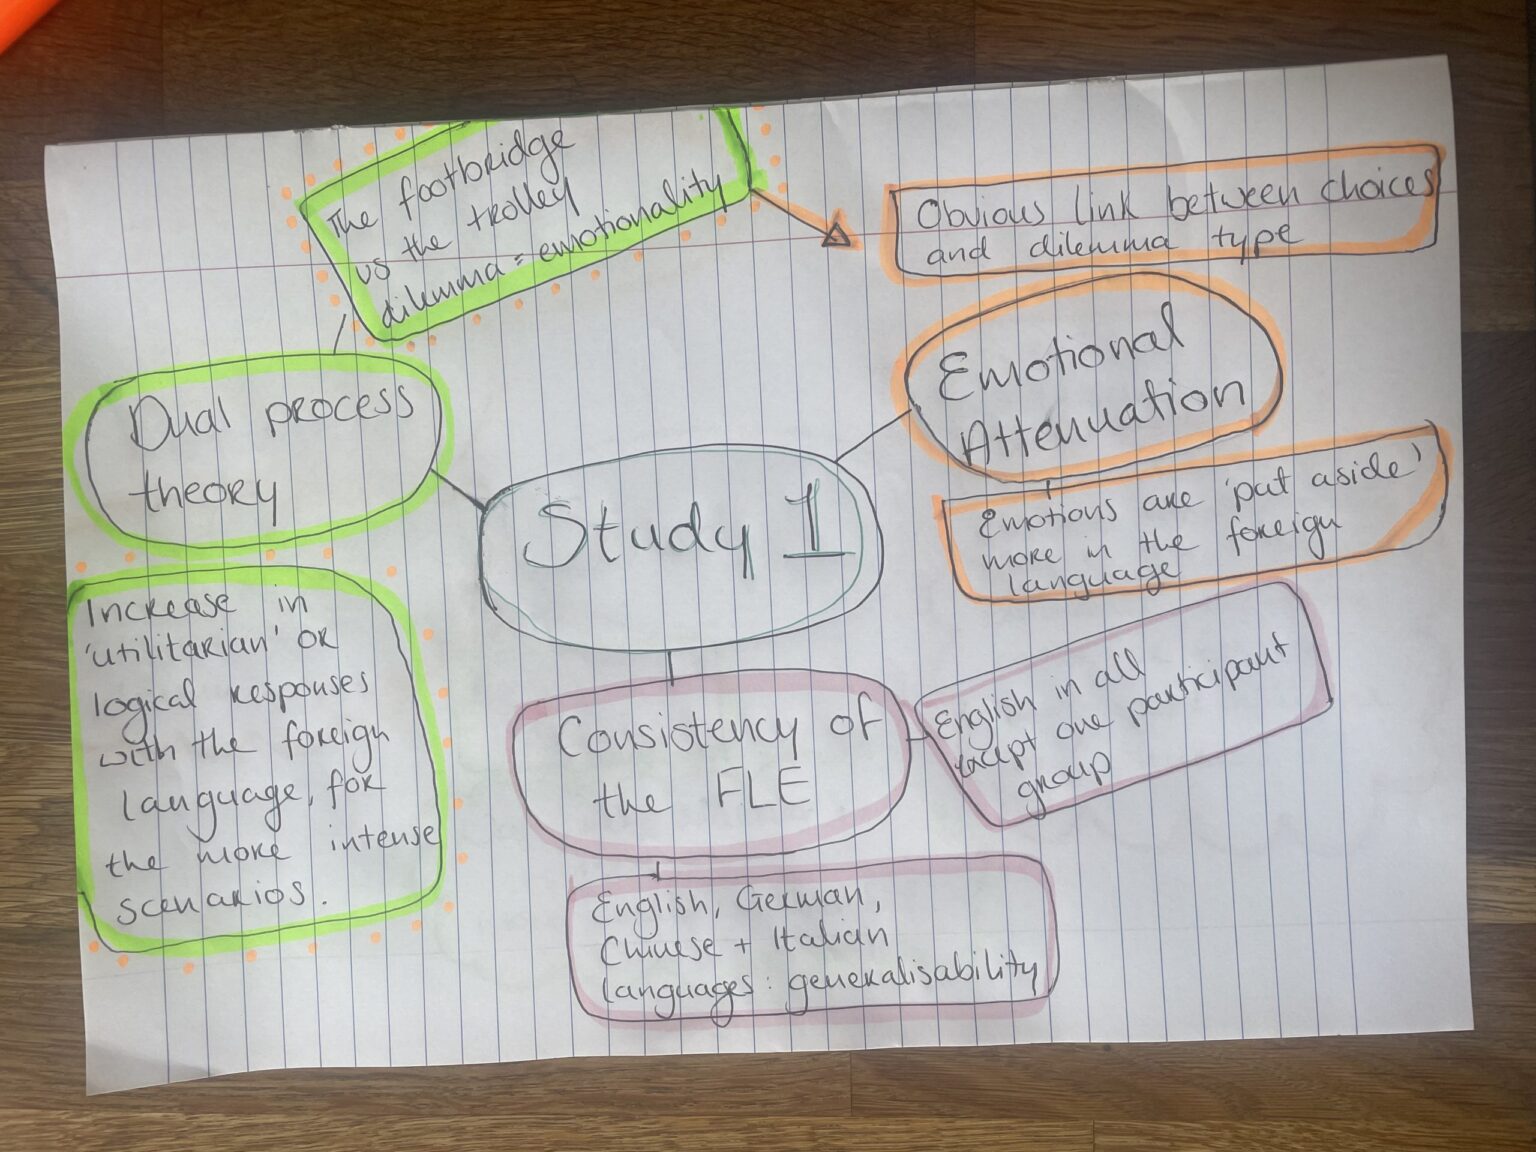 The footbridge
vs the trolley
dilemma = emotionality
Obvious link between choices
and dilemma type
Dual process
theory
Emotional
Attenuation
Study 1
Emotions are 'put aside'
more in the foreign
language
Increase in
'utilitarian' or
logical responses
with the foreign
language, for
the more intense
scenarios.
Consistency of
the FLE
English in all
except one participant
group
English, German,
Chinese + Italian
languages: generalisability